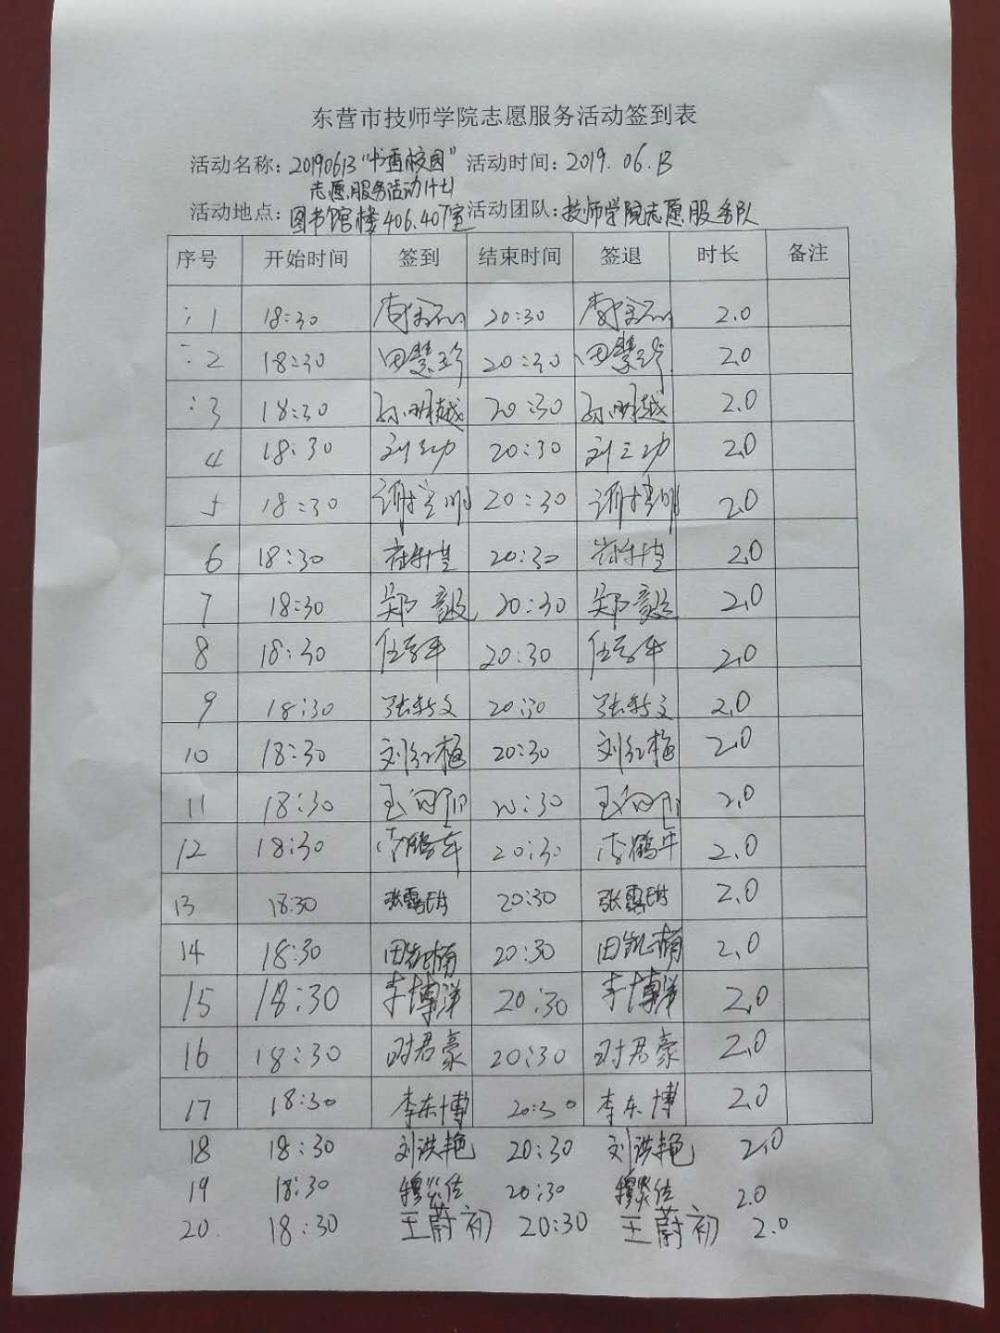 东营市技师学院志愿服务活动签到表
活动名称：20190613"书画校园" 活动时间：2019.06.13
志愿服务活动(十七)
活动地点：图书馆楼406.407室 活动团队：技师学院志愿服务队
序号 开始时间 签到 结束时间 签退 时长 备注
1 18:30 20:30 2.0
2 18:30 田慧珍 20:30 田慧珍 2.0
3 18:30 孙明越 20:30 孙明越 2.0
4 18:30 刘立功 20:30 刘立功 2.0
5 18:30 20:30 2.0
6 18:30 20:30 2.0
7 18:30 郑毅 20:30 郑毅 2.0
8 18:30 20:30 2.0
9 18:30 张新文 20:30 张新文 2.0
10 18:30 刘红梅 20:30 刘红梅 2.0
11 18:30 20:30 2.0
12 18:30 李鹤年 20:30 李鹤年 2.0
13 18:30 张露琪 20:30 张露琪 2.0
14 18:30 田凯楠 20:30 田凯楠 2.0
15 18:30 李博洋 20:30 李博洋 2.0
16 18:30 时君豪 20:30 时君豪 2.0
17 18:30 李东博 20:30 李东博 2.0
18 18:30 刘洪艳 20:30 刘洪艳 2.0
19 18:30 20:30 2.0
20. 18:30 王蔚初 20:30 王蔚初 2.0